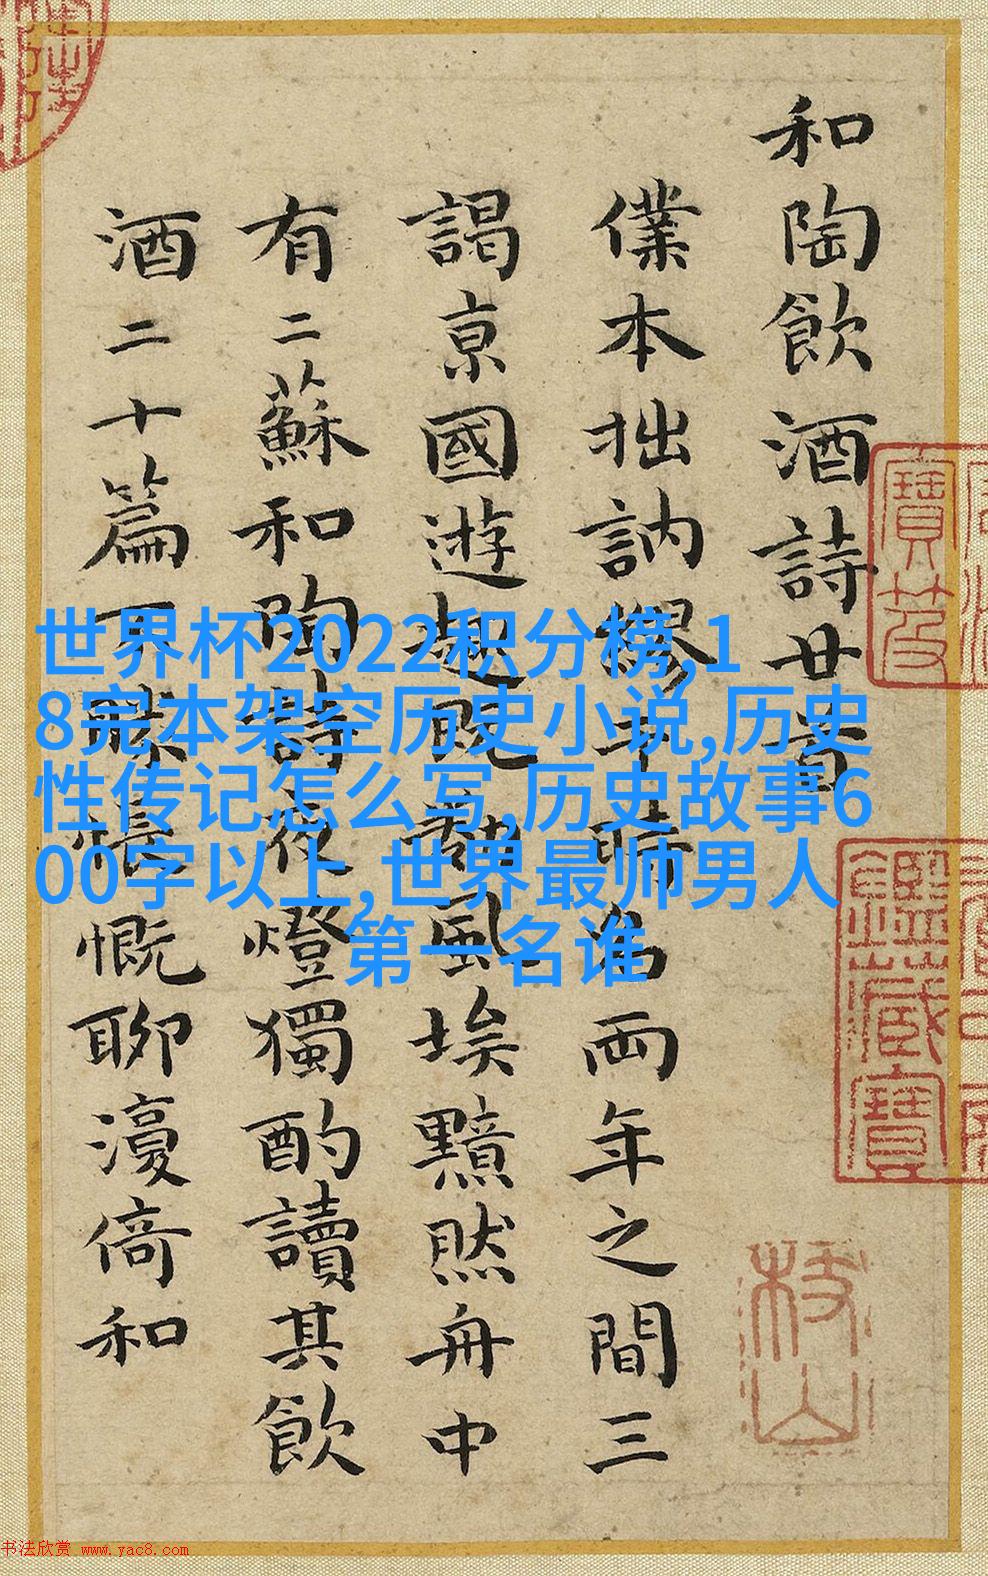 和陶飲酒詩廿首
僕本拙訥繆干時名兩年之間三
謁京國遊既風埃黯然舟中
有二蘇和陶詩夜燈獨酌讀其飲
酒二十篇不勝悵慨聊漫倚和
世界杯2022积分榜,1
8完本架空历史小说,历史
性传记怎么写,历史故事6
00字以上,世界最帅男人
第一名谁
寶笈
鑑藏寶
枝山
书法欣赏 www.yac8.com